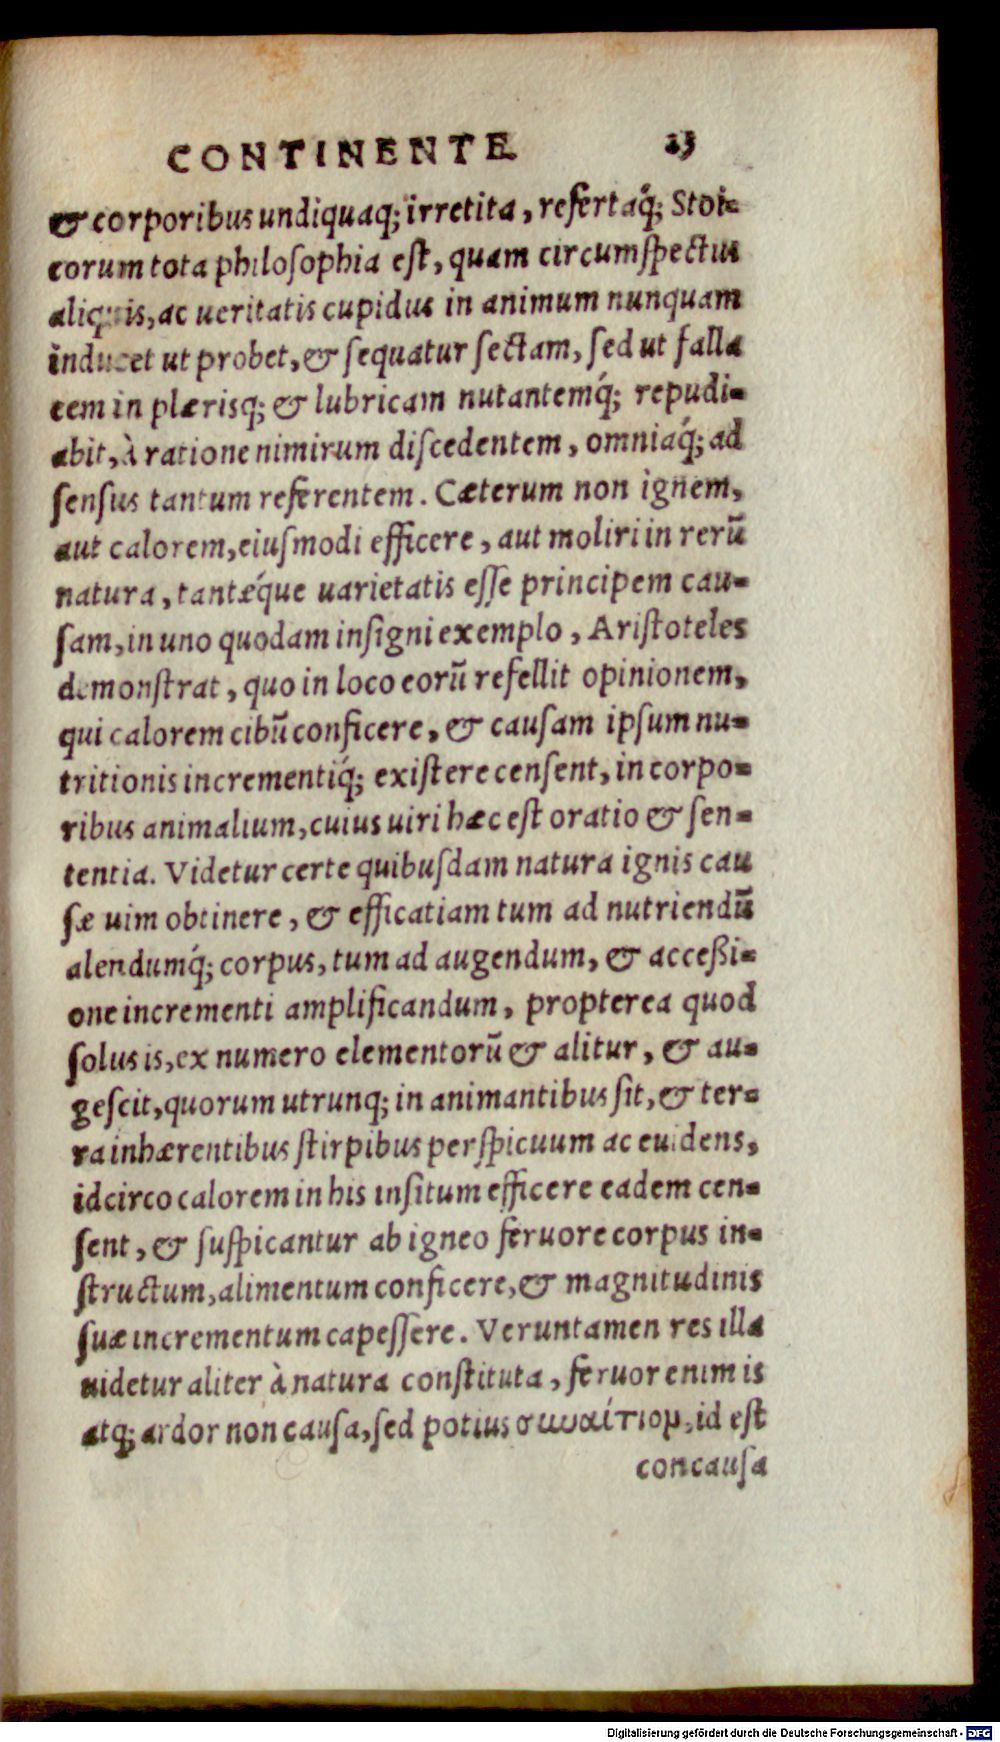 CONTINENTE 23
& corporibus undiquaq; irretita, refertaq́; Stoi-
corum tota philosophia est, quam circumspectus
aliquis, ac ueritatis cupidus in animum nunquam
inducet ut probet, & sequatur sectam, sed ut falla
cem in plærisq; & lubricam nutantemq́; repudi-
abit, à ratione nimirum discedentem, omniaq́; ad
sensus tantum referentem. Cæterum non ignem,
aut calorem, eiusmodi efficere, aut moliri in rerū
natura, tantǽque uarietatis esse principem cau-
sam, in uno quodam insigni exemplo, Aristoteles
demonstrat, quo in loco eorū refellit opinionem,
qui calorem cibū conficere, & causam ipsum nu-
tritionis incrementiq́; existere censent, in corpo-
ribus animalium, cuius uiri hæc est oratio & sen-
tentia. Videtur certe quibusdam natura ignis cau
sæ uim obtinere, & efficatiam tum ad nutriendū
alendumq́; corpus, tum ad augendum, & acceßi-
one incrementi amplificandum, propterea quod
solus is, ex numero elementorū & alitur, & au-
gescit, quorum utrunq; in animantibus sit, & ter-
ra inhærentibus stirpibus perspicuum ac euidens,
idcirco calorem in his insitum efficere eadem cen-
sent, & suspicantur ab igneo feruore corpus in-
structum, alimentum conficere, & magnitudinis
suæ incrementum capessere. Veruntamen res illa
uidetur aliter à natura constituta, feruor enim is
atq; ardor non causa, sed potius συναίτιον, id est
concausa
Digitalisierung gefördert durch die Deutsche Forschungsgemeinschaft - DFG